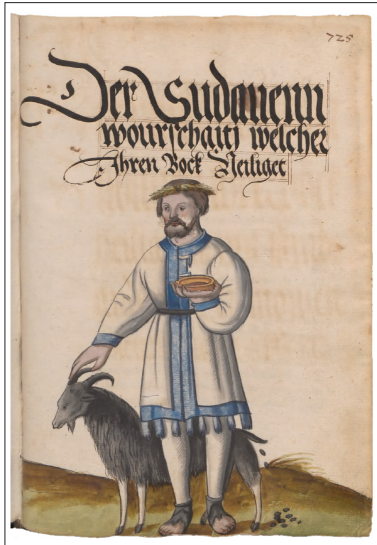 725
Der Sudauenn
wourschaitj welcher
Ihren Bock Heiliget